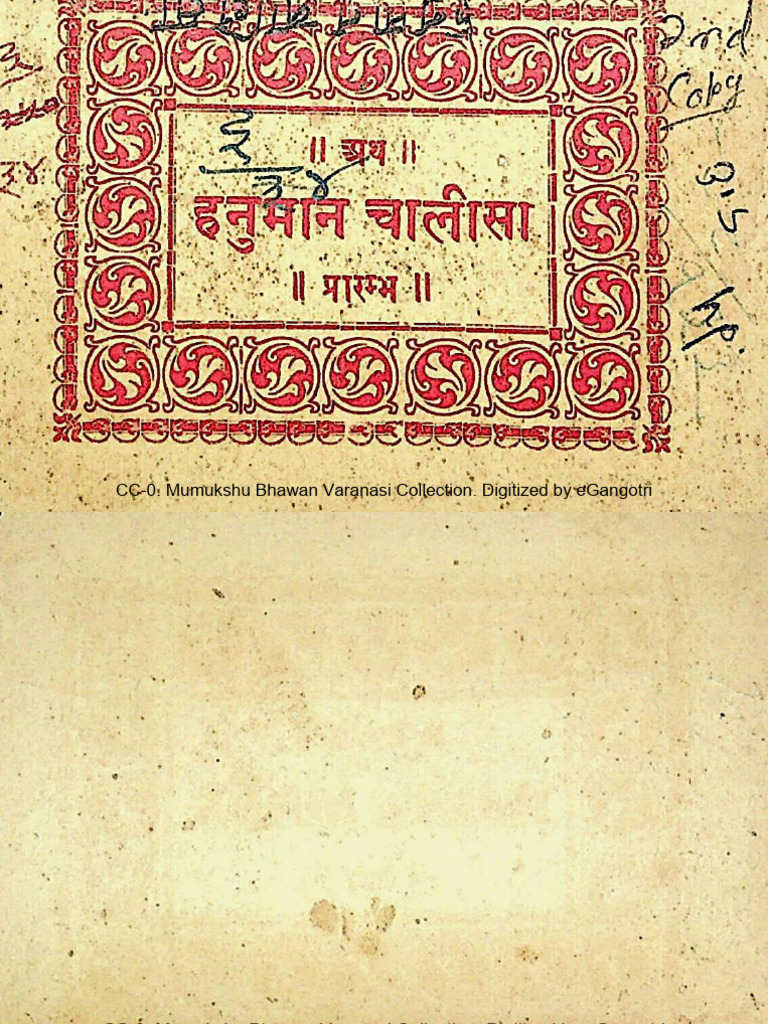 2nd
Copy
३
३४
३
३४
॥ अथ ॥
हनुमान चालीसा
॥ प्रारम्भ ॥
CC-0. Mumukshu Bhawan Varanasi Collection. Digitized by eGangotri